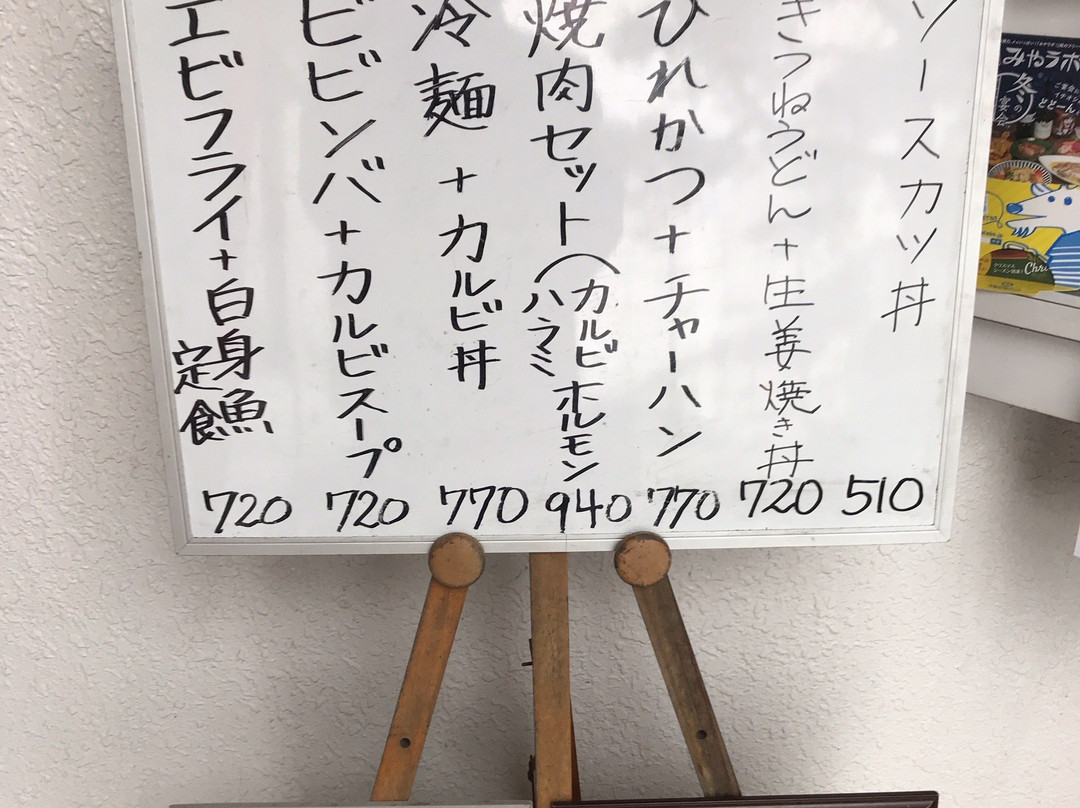 ソースカツ丼
510
きつねうどん+生姜焼き丼
720
ひれかつ+チャーハン
770
焼肉セット(カルビホルモン
ハラミ
940
冷麺+カルビ丼
770
ビビンバ+カルビスープ
720
エビフライ+白身魚
定食
720
みやラボ
冬の宴会
どどーん
Chri